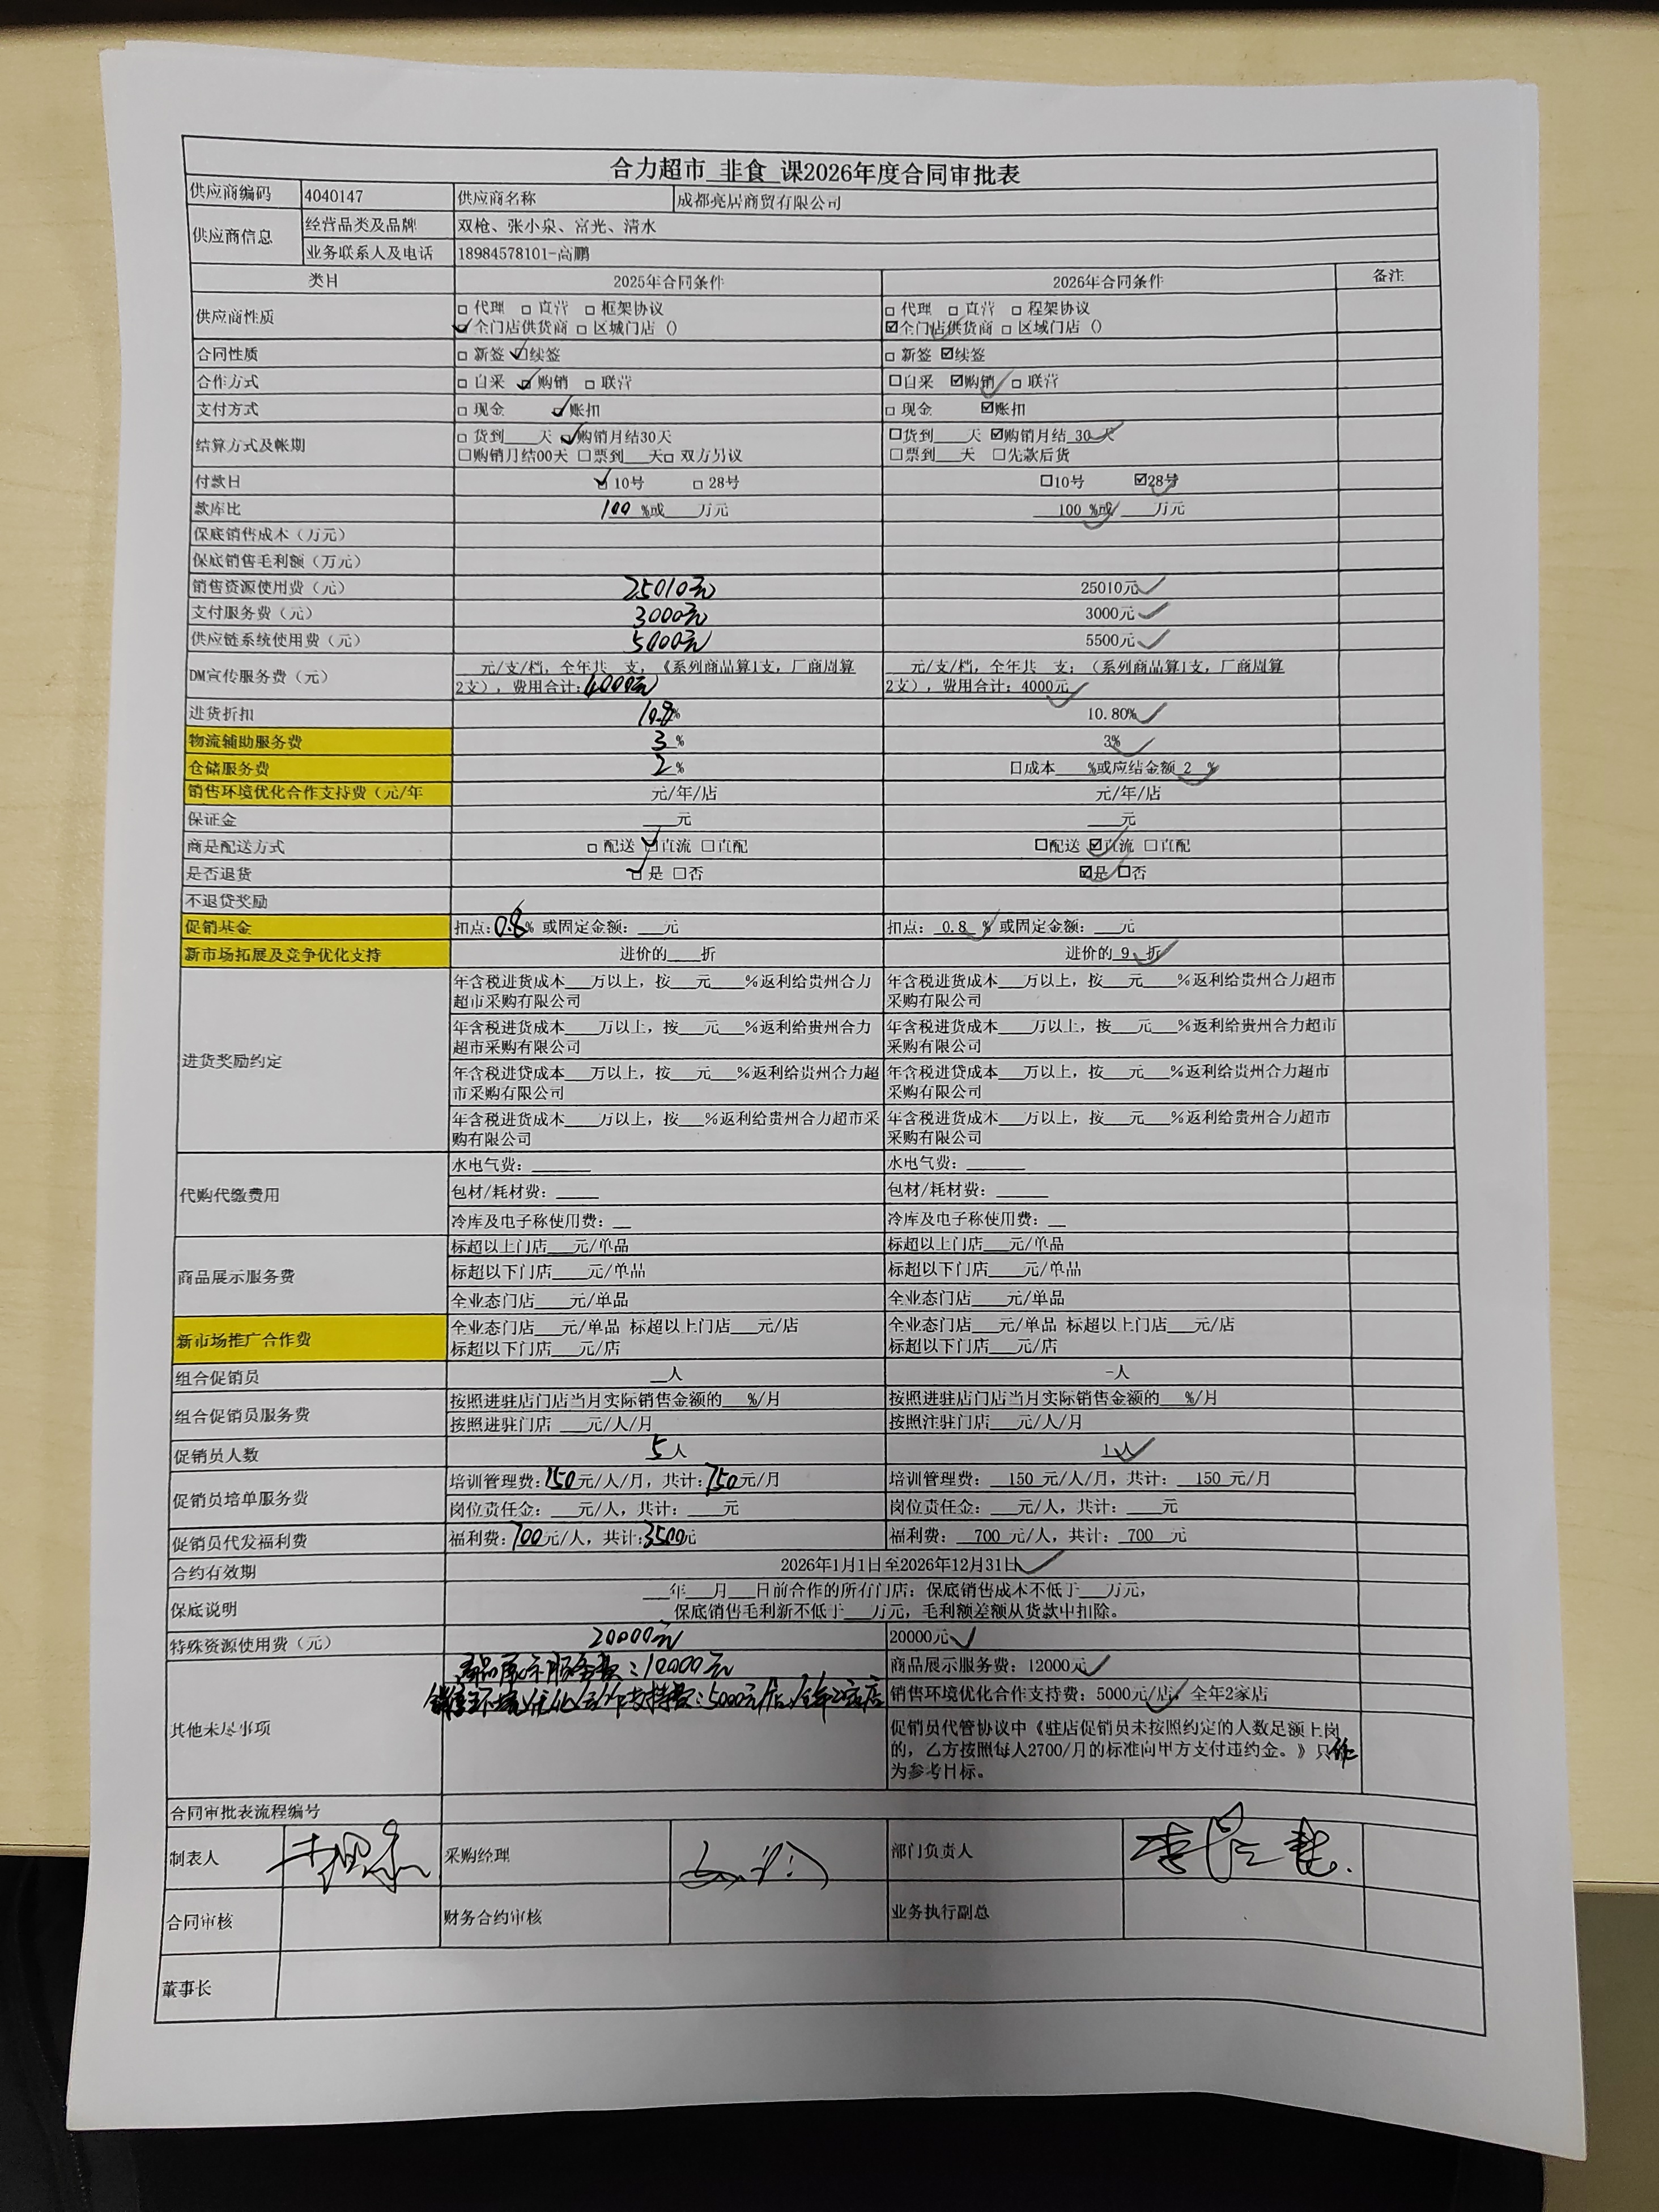 合力超市 非食 课2026年度合同审批表
供应商编码 4040147 供应商名称 成都亮居商贸有限公司
供应商信息 经营品类及品牌 双枪、张小泉、富光、清水
业务联系人及电话 18984578101-高鹏
类目 2025年合同条件 2026年合同条件 备注
供应商性质 □ 代理 □ 直营 □ 框架协议 □ 代理 □ 直营 □ 程架协议
☑ 全门店供货商 □ 区域门店 () ☑全门店供货商 □ 区域门店 ()
合同性质 □ 新签 ☑续签 □ 新签 ☑续签
合作方式 □ 自采 ☑ 购销 □ 联营 □自采 ☑购销 □ 联营
支付方式 □ 现金 ☑账扣 □ 现金 ☑账扣
结算方式及帐期 □ 货到___天 ☑购销月结30天 □货到___天 ☑购销月结 30 天
□购销月结00天 □票到___天□ 双方另议 □票到___天 □先款后货
付款日 ☑ 10号 □ 28号 □10号 ☑28号
款库比 100 %或___万元 100 %或___万元
保底销售成本（万元）
保底销售毛利额（万元）
销售资源使用费（元） 25010元 25010元
支付服务费（元） 3000元 3000元
供应链系统使用费（元） 5000元 5500元
DM宣传服务费（元） ___元/支/档，全年共__支；《系列商品算1支，厂商周算 ___元/支/档，全年共__支；（系列商品算1支，厂商周算
2支），费用合计：4000元 2支），费用合计：4000元
进货折扣 10.8% 10.80%
物流辅助服务费 3 % 3%
仓储服务费 2 % 口成本___%或应结金额 2 %
销售环境优化合作支持费（元/年 元/年/店 元/年/店
保证金 ___元 ___元
商是配送方式 □ 配送 ☑直流 □直配 □配送 ☑直流 □直配
是否退货 ☑ 是 □否 ☑是 □否
不退贷奖励
促销基金 扣点：0.8% 或固定金额：___元 扣点： 0.8 % 或固定金额：___元
新市场拓展及竞争优化支持 进价的___折 进价的 9 折
进货奖励约定 年含税进货成本___万以上，按___元___%返利给贵州合力 年含税进货成本___万以上，按___元___%返利给贵州合力超市
超市采购有限公司 采购有限公司
年含税进货成本___万以上，按___元___%返利给贵州合力 年含税进货成本___万以上，按___元___%返利给贵州合力超市
超市采购有限公司 采购有限公司
年含税进贷成本___万以上，按___元___%返利给贵州合力超 年含税进贷成本___万以上，按___元___%返利给贵州合力超市
市采购有限公司 采购有限公司
年含税进货成本___万以上，按___%返利给贵州合力超市采 年含税进货成本___万以上，按___元___%返利给贵州合力超市
购有限公司 采购有限公司
代购代缴费用 水电气费：______ 水电气费：______
包材/耗材费：____ 包材/耗材费：_____
冷库及电子称使用费：__ 冷库及电子称使用费：__
商品展示服务费 标超以上门店___元/单品 标超以上门店___元/单品
标超以下门店___元/单品 标超以下门店___元/单品
全业态门店___元/单品 全业态门店___元/单品
新市场推广合作费 全业态门店___元/单品 标超以上门店___元/店 全业态门店___元/单品 标超以上门店___元/店
标超以下门店___元/店 标超以下门店___元/店
组合促销员 __人 -人
组合促销员服务费 按照进驻店门店当月实际销售金额的___%/月 按照进驻店门店当月实际销售金额的___%/月
按照进驻门店 ___元/人/月 按照注驻门店___元/人/月
促销员人数 5 人 1人
促销员培单服务费 培训管理费：150元/人/月，共计：750元/月 培训管理费： 150 元/人/月，共计： 150 元/月
岗位责任金：___元/人，共计：___元 岗位责任金：___元/人，共计：___元
促销员代发福利费 福利费：700元/人，共计：3500元 福利费： 700 元/人，共计： 700 元
合约有效期 2026年1月1日至2026年12月31日
保底说明 ___年___月___日前合作的所有门店：保底销售成本不低于___万元，
保底销售毛利新不低于___万元，毛利额差额从货款中扣除。
特殊资源使用费（元） 20000元 20000元
其他未尽事项 商品展示服务费：12000元 商品展示服务费：12000元
销售环境优化合作支持费：5000元/店，全年2家店 销售环境优化合作支持费：5000元/店，全年2家店
促销员代管协议中《驻店促销员未按照约定的人数足额上岗
的，乙方按照每人2700/月的标准向甲方支付违约金。》只作
为参考目标。
合同审批表流程编号
制表人 采购经理 部门负责人
合同审核 财务合约审核 业务执行副总
董事长